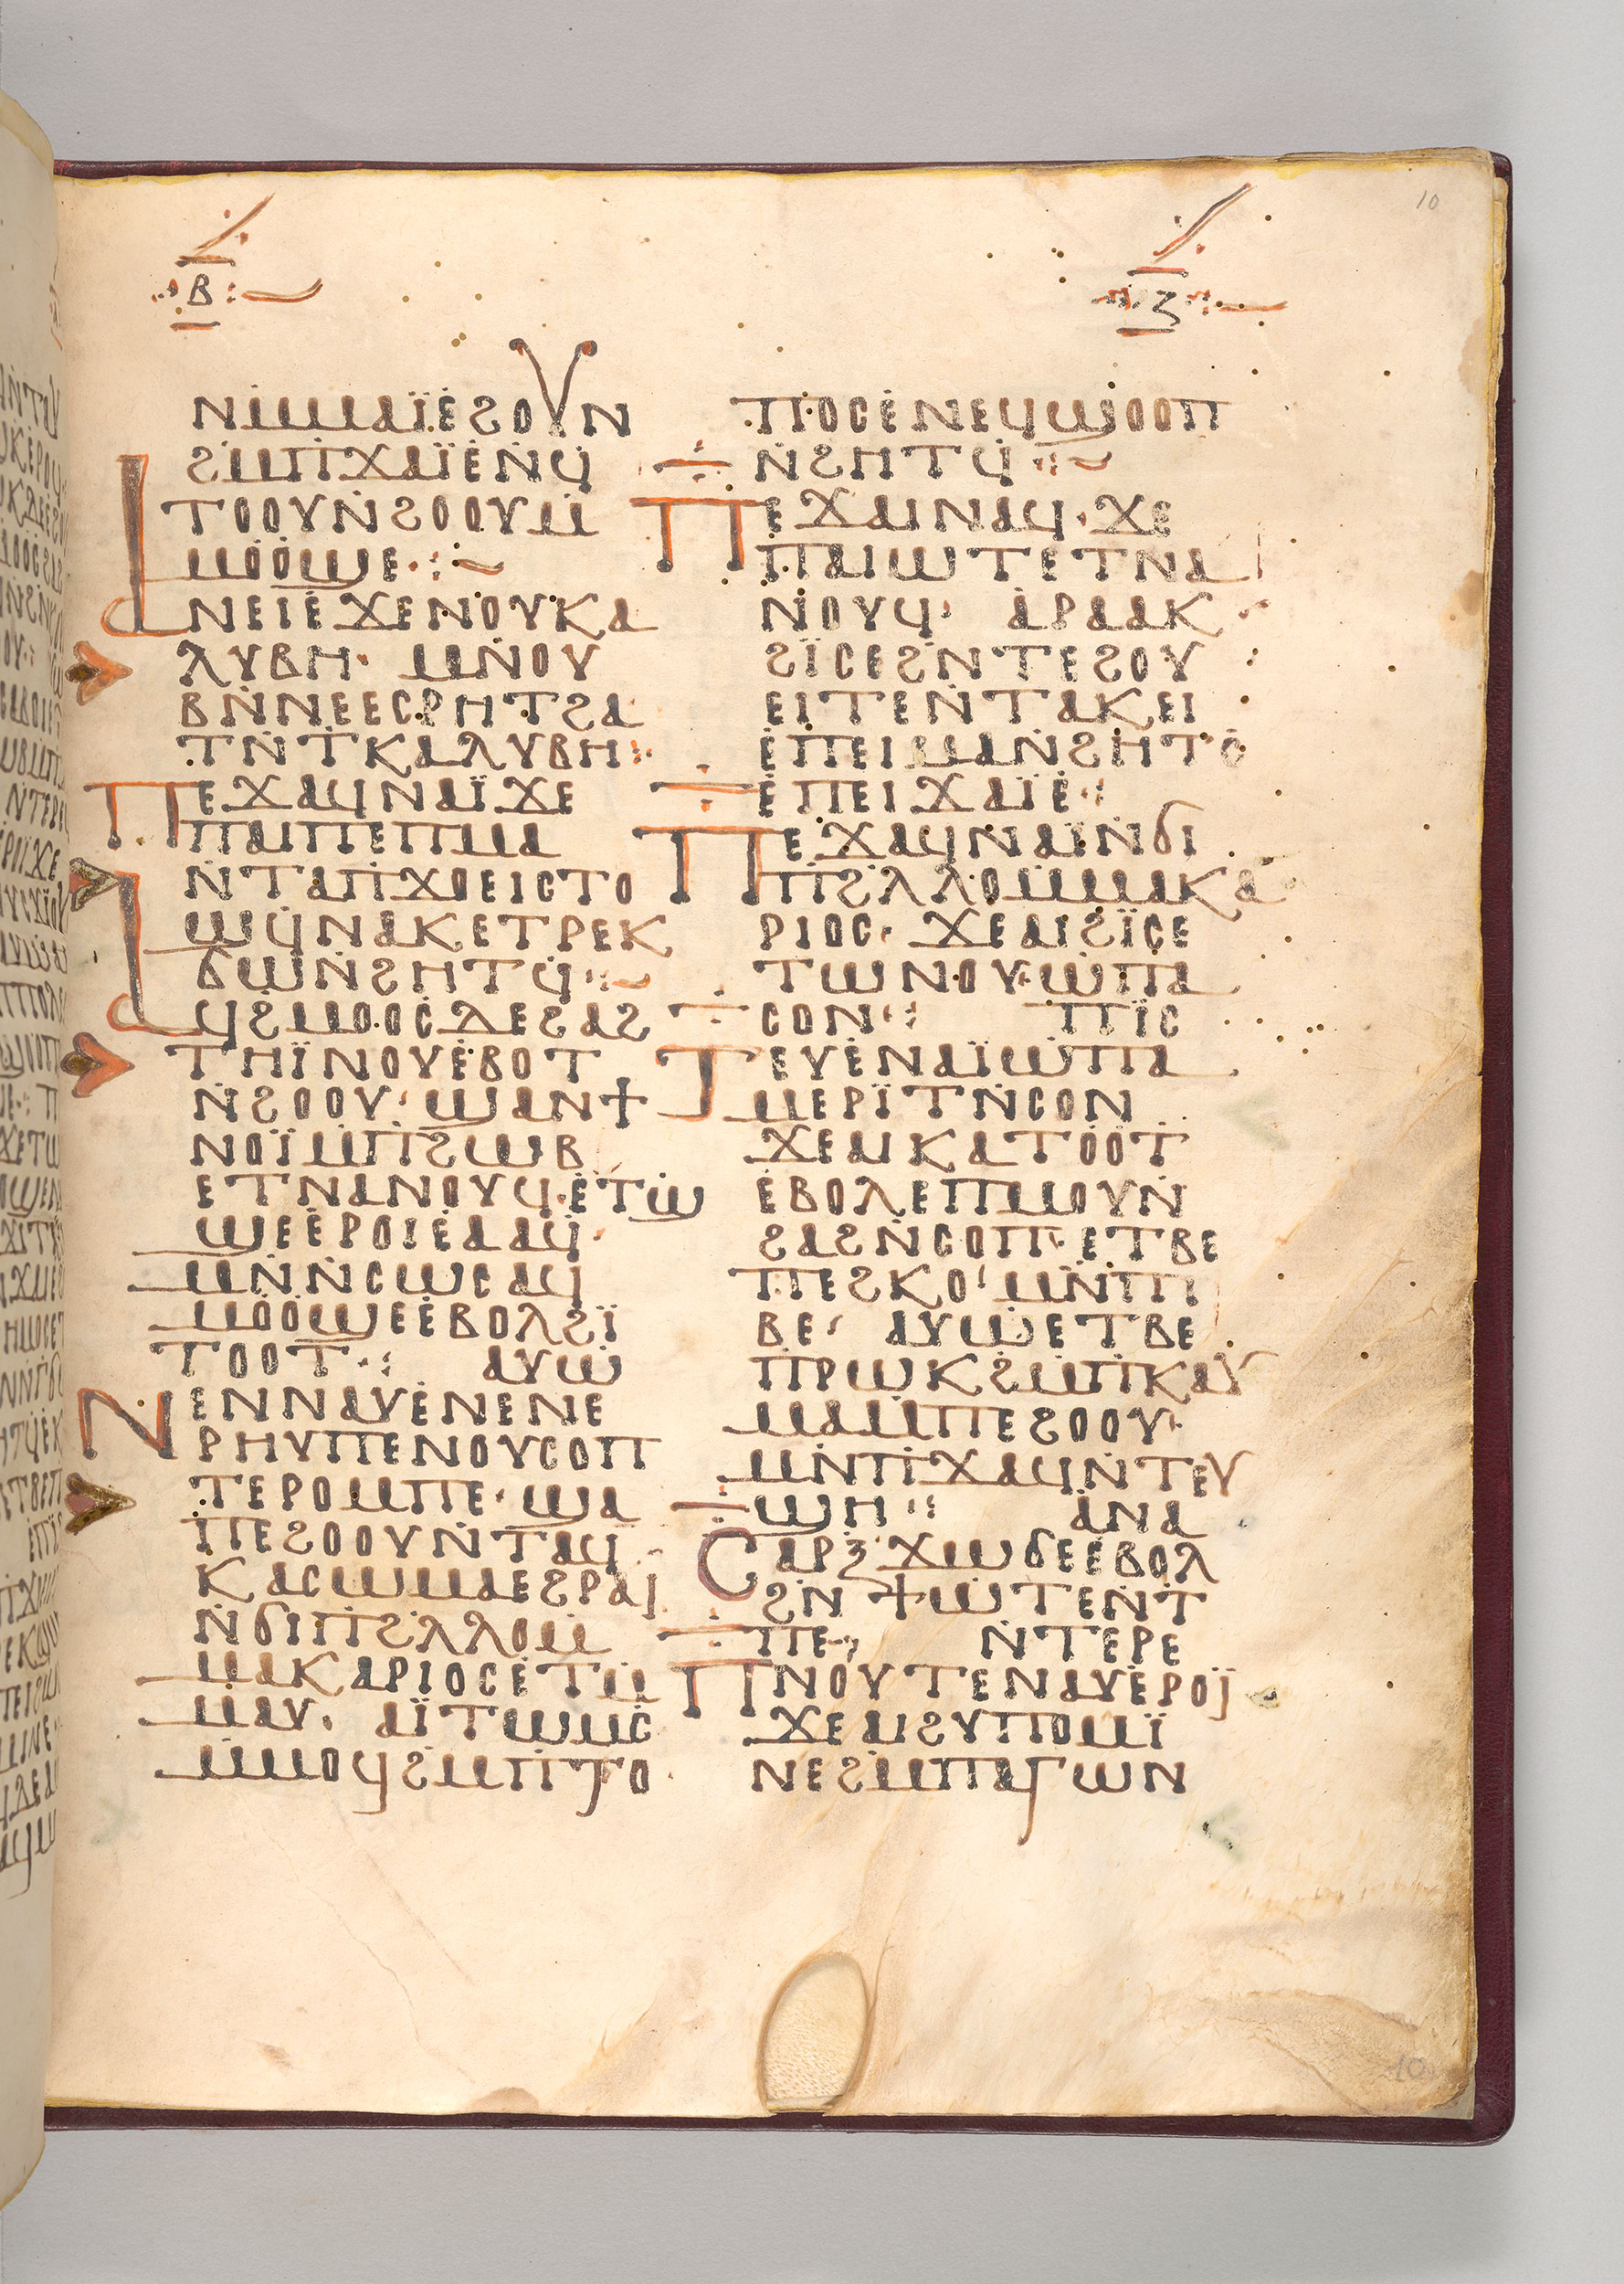 10
ⲃ
ⲍ
ⲛⲙⲙⲁⲓ̈ⲉϩⲟⲩⲛ
ϩⲙⲡϫⲁⲓ̈ⲉⲛϥ
ⲧⲟⲟⲩⲛϩⲟⲟⲩⲙ
ⲙⲟⲟϣⲉ
ⲁⲛⲉⲓⲉϫⲉⲛⲟⲩⲕⲁ
ⲗⲩⲃⲏ· ⲙⲛⲟⲩ
ⲃⲛⲛⲉⲉⲥⲣⲏⲧϩⲁ
ⲧⲛⲧⲕⲁⲗⲩⲃⲏ
ⲡⲉϫⲁϥⲛⲁⲓ̈ϫⲉ
ⲡⲁⲓⲡⲉⲡⲙⲁ
ⲛⲧⲁⲡϫⲟⲉⲓⲥⲧⲟ
ϣϥⲛⲁⲕⲉⲧⲣⲉⲕ
ϭⲱⲛϩⲏⲧϥ
ⲁϥϩⲙⲟⲟⲥⲇⲉϩⲁϩ
ⲧⲏⲓ̈ⲛⲟⲩⲉⲃⲟⲧ
ⲛϩⲟⲟⲩ· ϣⲁⲛϯ
ⲛⲟⲓ̈ⲙⲡϩⲱⲃ
ⲉⲧⲛⲁⲛⲟⲩϥ·ⲉⲧⲱ
ϣⲉⲉⲣⲟⲓⲉⲁⲁϥ·
ⲙⲛⲛⲥⲱⲥⲁϥ
ⲙⲟⲟϣⲉⲉⲃⲟⲗϩⲓ̈
ⲧⲟⲟⲧ ⲁⲩⲱ
ⲛⲉⲛⲛⲁⲩⲉⲛⲉⲛⲉ
ⲣⲏⲩⲡⲉⲛⲟⲩⲥⲟⲡ
ⲧⲉⲣⲟⲙⲡⲉ· ϣⲁ
ⲡⲉϩⲟⲟⲩⲛⲧⲁϥ
ⲕⲁⲥⲱⲙⲁⲉϩⲣⲁⲓ
ⲛϭⲓⲡϩⲗⲗⲟⲙ
ⲙⲁⲕⲁⲣⲓⲟⲥⲉⲧⲙ
ⲙⲁⲩ· ⲁⲓ̈ⲧⲱⲙⲥ
ⲙⲙⲟϥϩⲙⲡⲧⲟ
ⲡⲟⲥⲉⲛⲉϥϣⲟⲟⲡ
ⲛϩⲏⲧϥ
ⲡⲉϫⲁⲓⲛⲁϥ· ϫⲉ
ⲡⲁⲓⲱⲧⲉⲧⲛⲁ
ⲛⲟⲩϥ· ⲁⲣⲁⲁⲕ
ϩⲓ̈ⲥⲉϩⲛⲧⲉϩⲟⲩ
ⲉⲓⲧⲉⲛⲧⲁⲕⲉⲓ
ⲉⲡⲉⲓⲙⲁⲛϩⲏⲧⲥ
ⲉⲡⲉⲓϫⲁⲓ̈ⲉ
ⲡⲉϫⲁϥⲛⲁⲓ̈ⲛϭⲓ
ⲡϩⲗⲗⲟⲙⲙⲁⲕⲁ
ⲣⲓⲟⲥ· ϫⲉⲁⲓϩⲓ̈ⲥⲉ
ⲧⲱⲛⲟⲩ·ⲱⲡⲁ
ⲥⲟⲛ ⲡⲓ̈ⲥ
ⲧⲉⲩⲉⲛⲁⲓ̈ⲱⲡⲁ
ⲙⲉⲣⲓ̈ⲧⲛⲥⲟⲛ
ϫⲉⲁⲓⲕⲁⲧⲟⲟⲧ
ⲉⲃⲟⲗⲉⲡⲙⲟⲩⲛ
ϩⲁϩⲛⲥⲟⲡ· ⲉⲧⲃⲉ
ⲡⲉϩⲕⲟ· ⲙⲛⲡⲓ
ⲃⲉ· ⲁⲩⲱⲉⲧⲃⲉ
ⲡⲣⲱⲕϩⲙⲡⲕⲁⲩ
ⲙⲁⲙⲡⲉϩⲟⲟⲩ·
ⲙⲛⲡϫⲁϥⲛⲧⲉⲩ
ϣⲏ ⲁⲛⲁ
ⲥⲁⲣⲝ ϫⲱϭⲉⲉⲃⲟⲗ
ϩⲛ ϯⲱⲧⲉⲛⲧ
ⲡⲉ· ⲛⲧⲉⲣⲉ
ⲡⲛⲟⲩⲧⲉⲛⲁⲩⲉⲣⲟⲓ̈
ϫⲉⲁⲓϩⲩⲡⲟⲙⲓ̈
ⲛⲉϩⲙⲡⲁⲅⲱⲛ
10